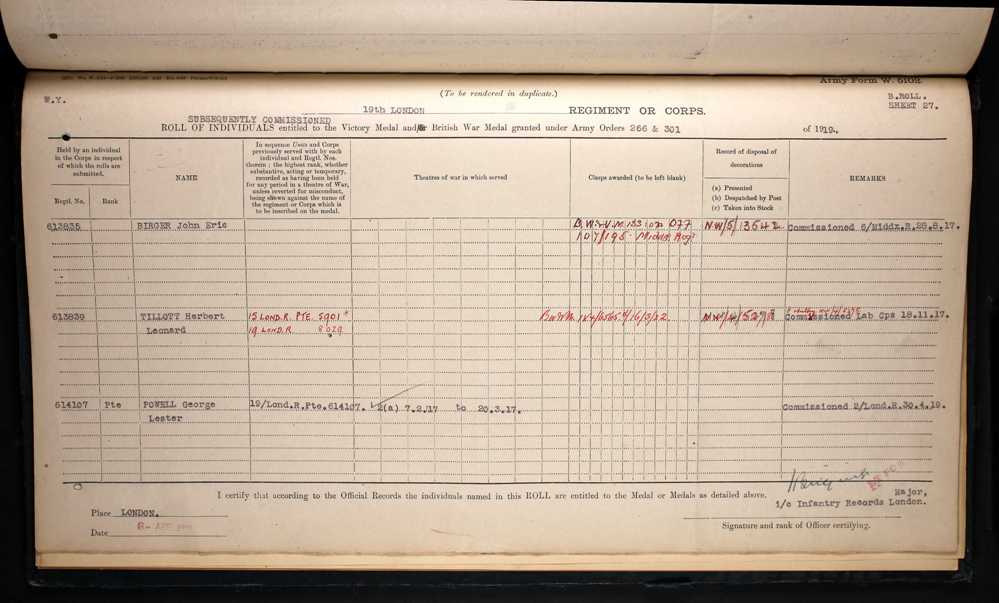 Army Form W. 5102.
(To be rendered in duplicate.)
W.Y.
B.ROLL.
SHEET 27.
19th LONDON REGIMENT OR CORPS.
SUBSEQUENTLY COMMISSIONED
ROLL OF INDIVIDUALS entitled to the Victory Medal and/or British War Medal granted under Army Orders 266 & 301 of 1919.
Held by an individual
in the Corps in respect
of which the rolls are
submitted.
Regtl. No.
Rank
NAME
In sequence Units and Corps
previously served with by each
individual and Regtl. Nos.
therein: the highest rank, whether
substantive, acting or temporary,
recorded as having been held
for any period in a theatre of War,
unless reverted for misconduct,
being shown against the name of
the regiment or Corps which is
to be inscribed on the medal.
Theatres of war in which served
Clasps awarded (to be left blank)
Record of disposal of
decorations
(a) Presented
(b) Despatched by Post
(c) Taken into Stock
REMARKS
613835 BIRGER John Eric NW/5/13542 Commissioned 6/Middx.R.26.9.17.
613839 TILLOTT Herbert 15 LOND.R. PTE. 5901 Commissioned Lab Cps 18.11.17.
Leonard 19 LOND.R. 8029
614107 Pte POWELL George 19/Lond.R.Pte.614107. 2(a) 7.2.17 to 20.3.17. Commissioned 2/Lond.R.30.4.19.
Lester
I certify that according to the Official Records the individuals named in this ROLL are entitled to the Medal or Medals as detailed above.
Major,
i/c Infantry Records London.
Place LONDON.
Signature and rank of Officer certifying.
Date